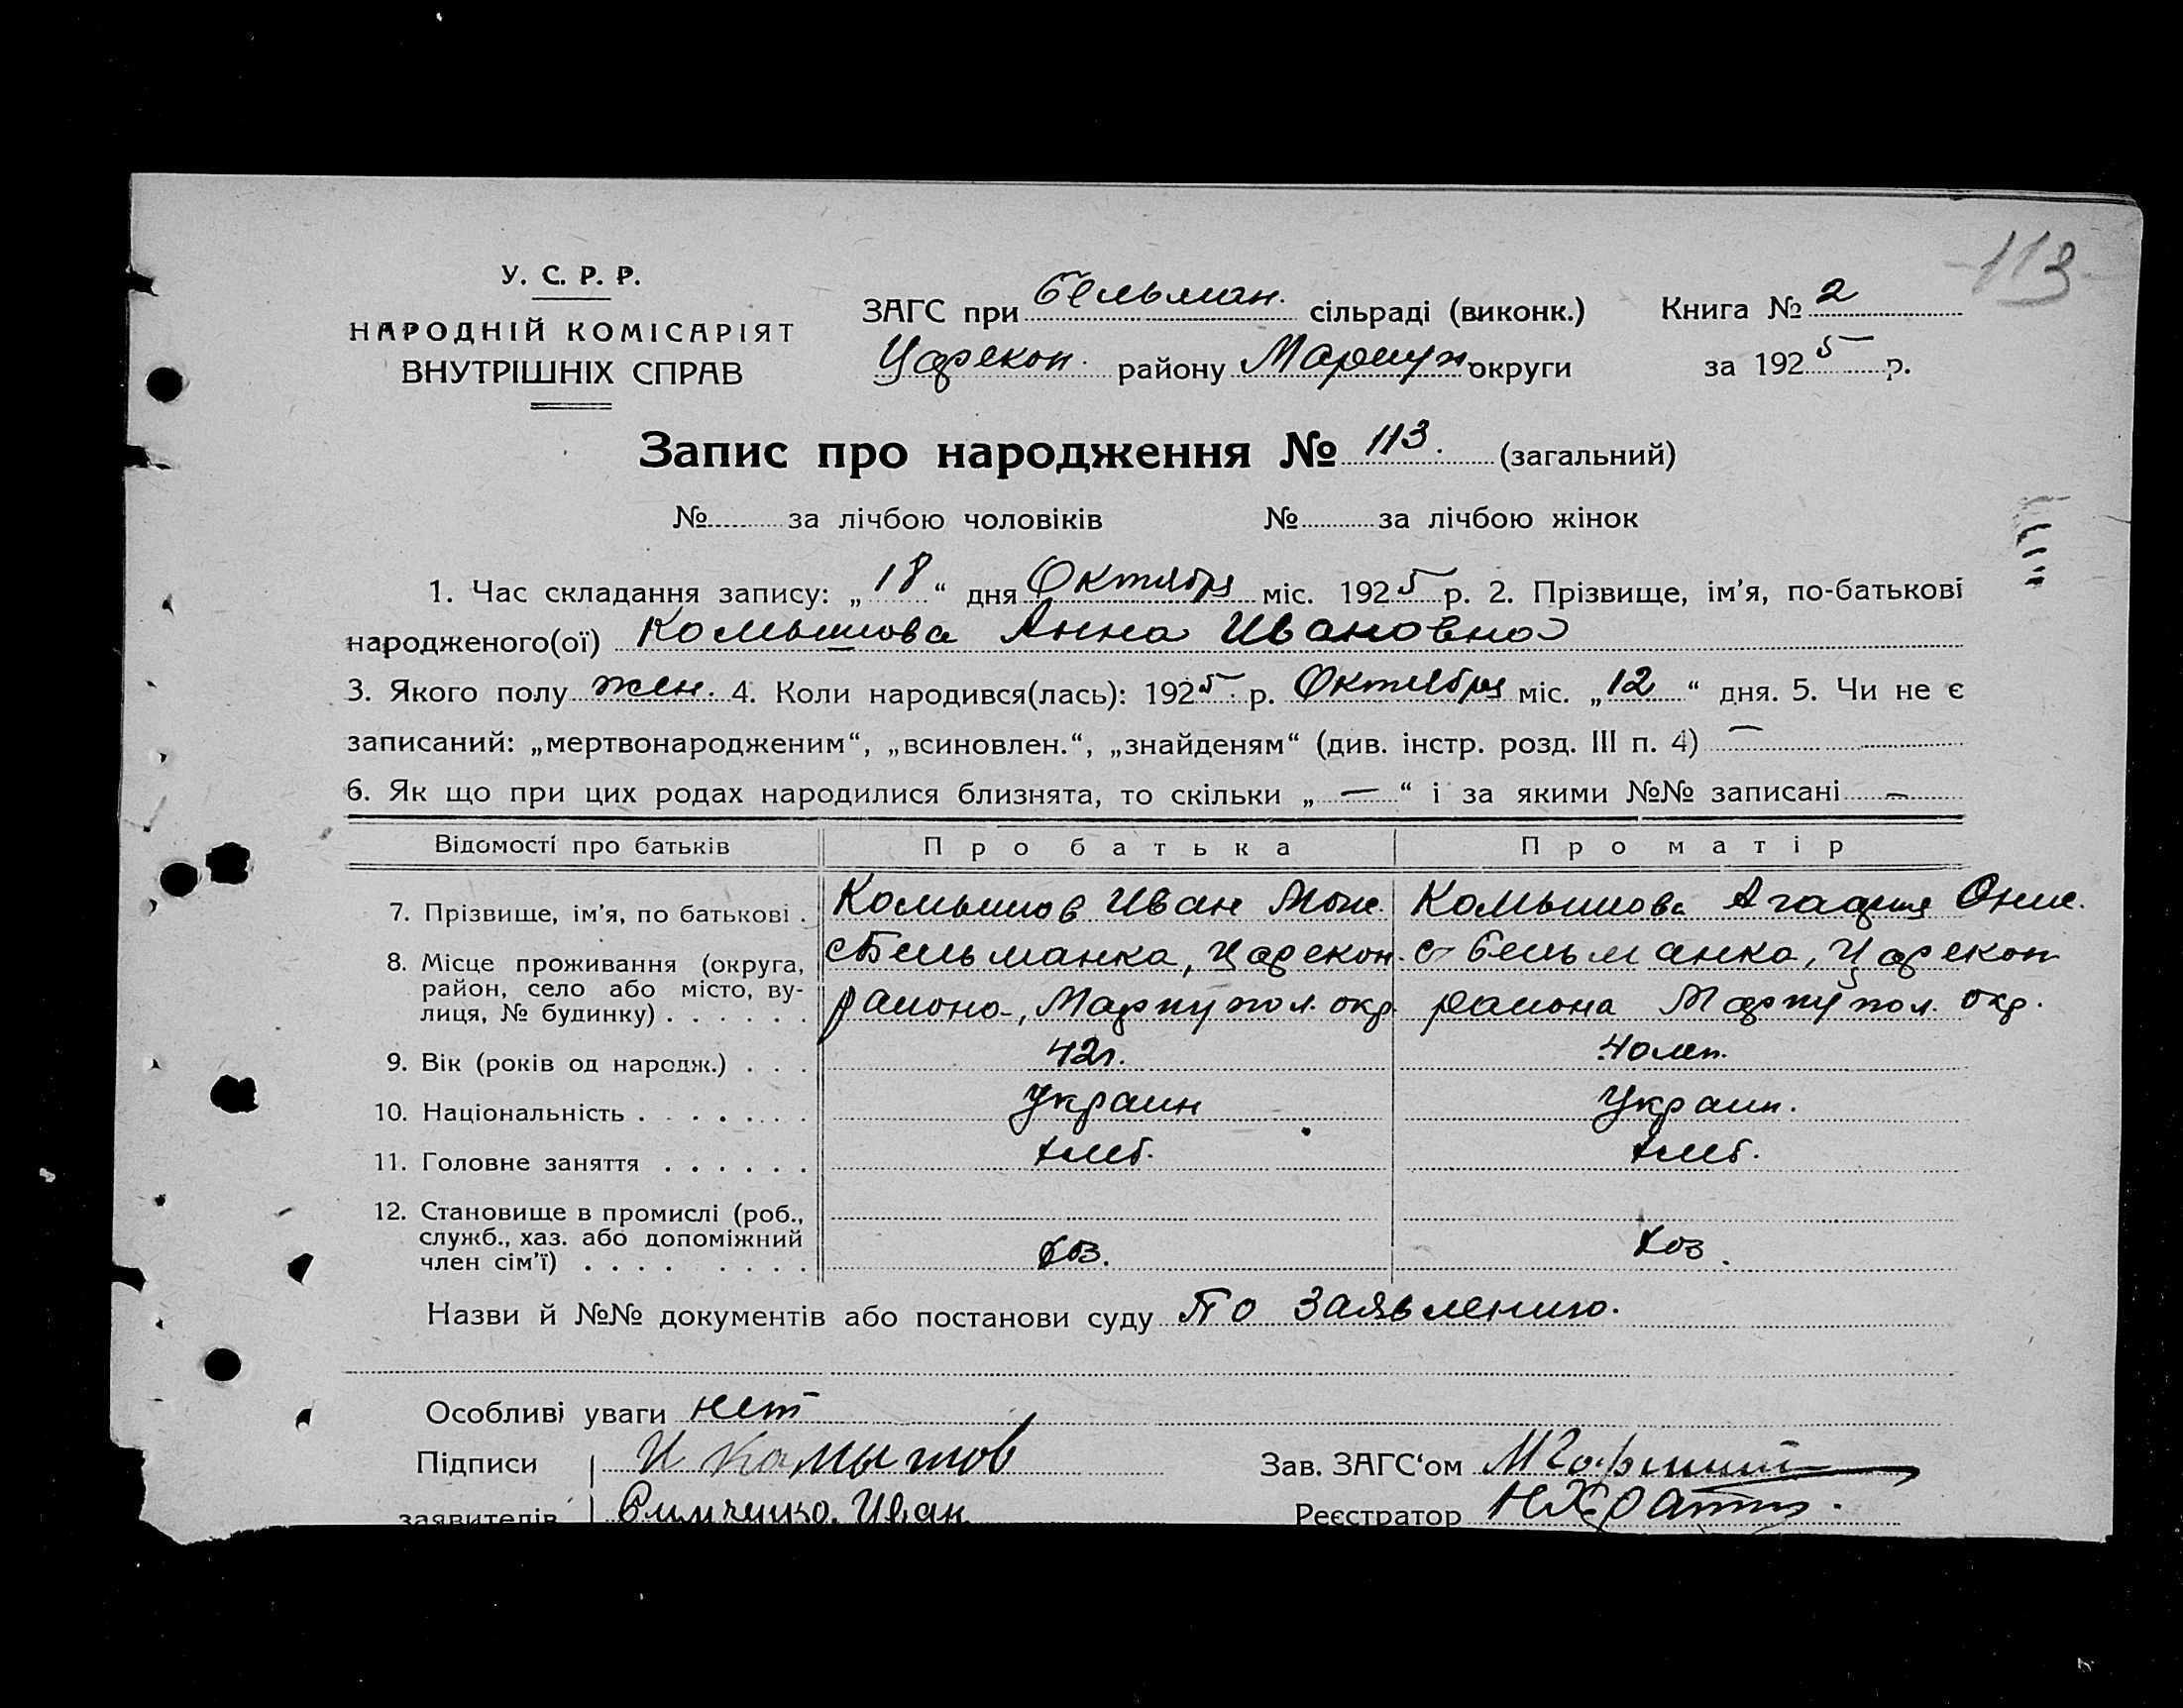 113
У. С. Р. Р.
НАРОДНІЙ КОМІСАРІЯТ
ВНУТРІШНІХ СПРАВ
ЗАГС при Бельман. сільраді (виконк.) Книга № 2
Царекон. району Мариуп округи за 1925 р.
Запис про народження № 113. (загальний)
№ за лічбою чоловіків № за лічбою жінок
1. Час складання запису: „18“ дня Октября міс. 1925 р. 2. Прізвище, ім'я, по-батькові
народженого(ої) Комышова Анна Ивановна
3. Якого полу жен. 4. Коли народився(лась): 1925 р. Октября міс. „12“ дня. 5. Чи не є
записаний: „мертвонародженим“, „всиновлен.“, „знайденям“ (див. інстр. розд. III п. 4) —
6. Як що при цих родах народилися близнята, то скільки „—“ і за якими №№ записані —
Відомості про батьків Про батька Про матір
7. Прізвище, ім'я, по батькові . Комышов Иван Комышова Агафия Онис.
8. Місце проживання (округа, с Бельманка, Царекон. с Бельманка, Царекон
район, село або місто, ву-
лиця, № будинку) . . . . . . района, Мариупол. окр. района Мариупол. окр.
9. Вік (років од народж.) . . . 42г. 40 лет.
10. Національність . . . . . . . Украин Украин.
11. Головне заняття . . . . . . хлеб. хлеб.
12. Становище в промислі (роб.,
служб., хаз. або допоміжний
член сім'ї) . . . . . . . . хоз. хоз.
Назви й №№ документів або постанови суду По заявлению.
Особливі уваги нет
Підписи И Комышов Зав. ЗАГС'ом
заявителів Иван Реєстратор